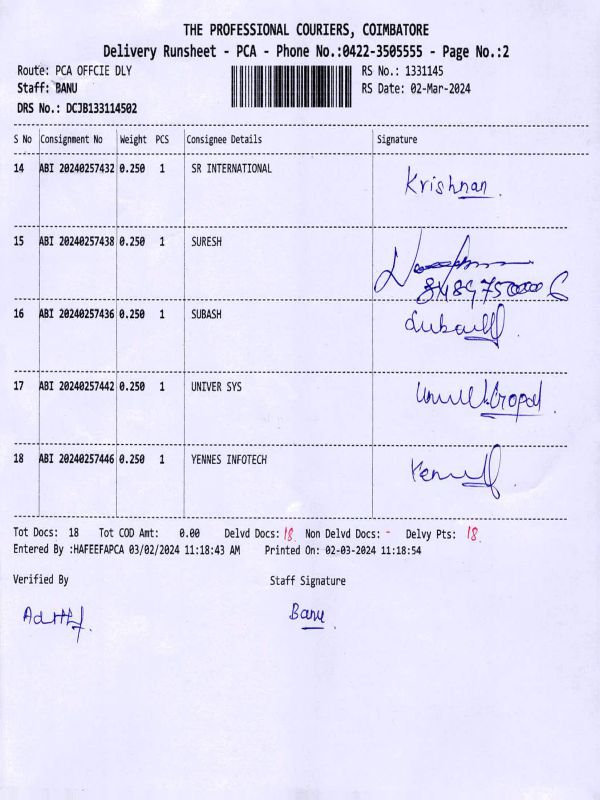 THE PROFESSIONAL COURIERS, COIMBATORE
Delivery Runsheet - PCA - Phone No.:0422-3505555 - Page No.:2
Route: PCA OFFCIE DLY RS No.: 1331145
Staff: BANU RS Date: 02-Mar-2024
DRS No.: DCJB133114502
S No Consignment No Weight PCS Consignee Details Signature
14 ABI 20240257432 0.250 1 SR INTERNATIONAL Krishnan
15 ABI 20240257438 0.250 1 SURESH
16 ABI 20240257436 0.250 1 SUBASH
17 ABI 20240257442 0.250 1 UNIVER SYS
18 ABI 20240257446 0.250 1 YENNES INFOTECH
Tot Docs: 18 Tot COD Amt: 0.00 Delvd Docs: 18 Non Delvd Docs: - Delvy Pts: 18
Entered By :HAFEEFAPCA 03/02/2024 11:18:43 AM Printed On: 02-03-2024 11:18:54
Verified By Staff Signature
Banu